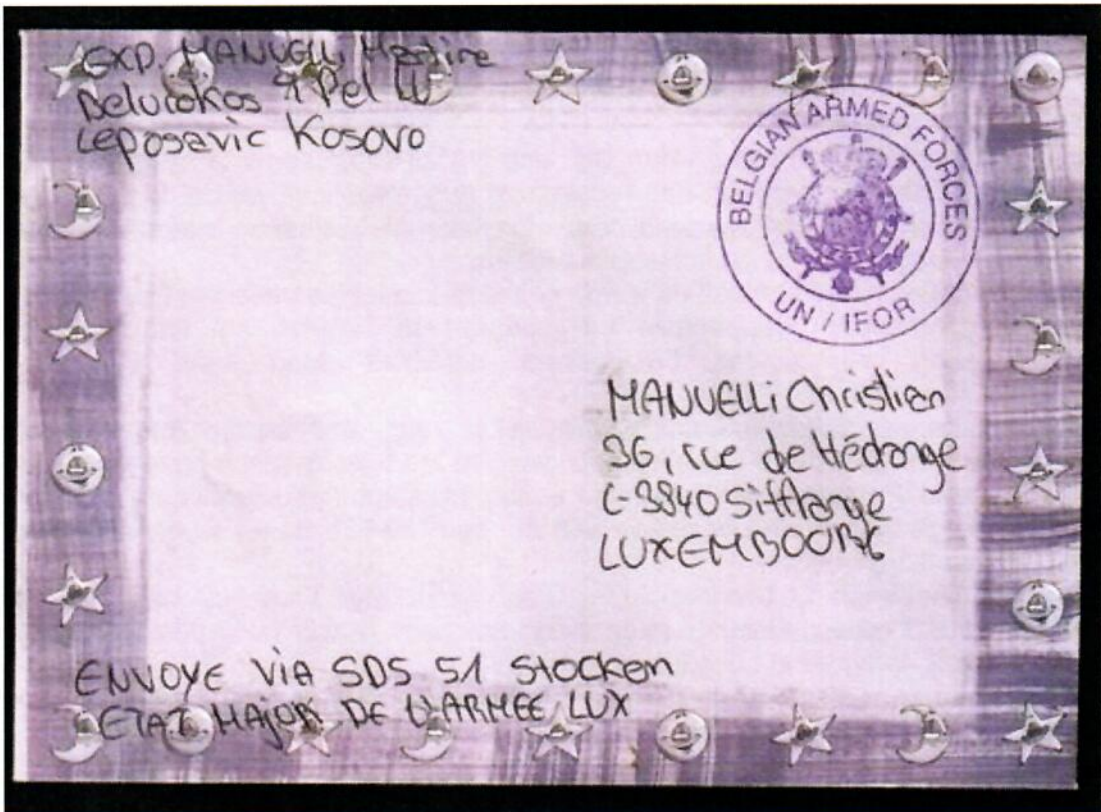 EXP. MANUELLi Martine
Belurokos 1 Pel LU
Leposavic Kosovo
BELGIAN ARMED FORCES
UN / IFOR
MANUELLi Christian
36, rue de Hédange
L-3840 Sifflange
LUXEMBOURG
ENVOYE VIA SDS 51 Stockem
ETAT MAJOR DE L'ARMEE LUX